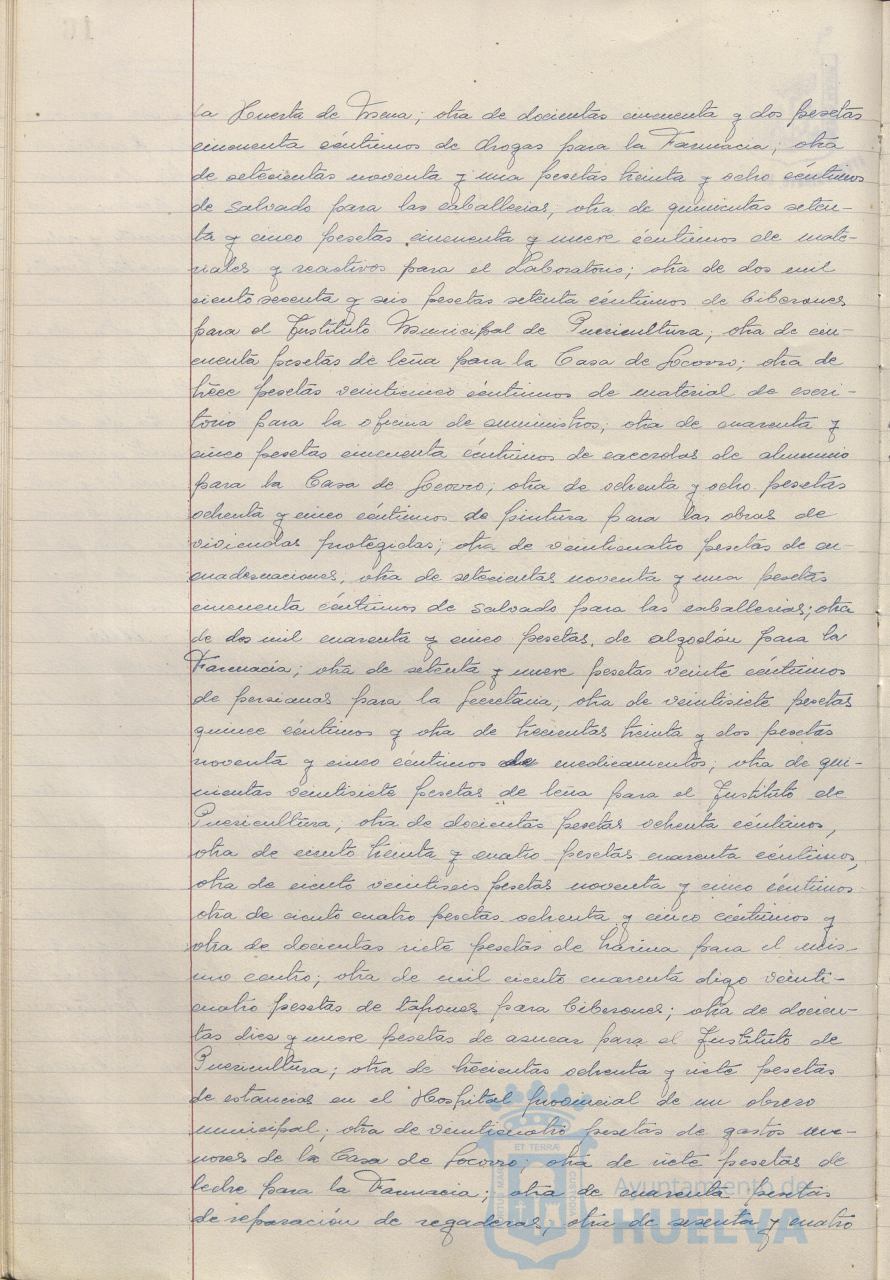 la Huerta de Mena; otra de docientas cincuenta y dos pesetas
cincuenta céntimos de drogas para la Farmacia; otra
de setecientas noventa y una pesetas treinta y ocho céntimos
de salvado para las caballerias; otra de quinientas seten-
ta y cinco pesetas cincuenta y nueve céntimos de mate-
riales y reactivos para el Laboratorio; otra de dos mil
ciento sesenta y seis pesetas setenta céntimos de biberones
para el Instituto Municipal de Puericultura; otra de cin-
cuenta pesetas de leña para la Casa de Socorro; otra de
trece pesetas veinticinco céntimos de material de escri-
torio para la oficina de suministros; otra de cuarenta y
cinco pesetas cincuenta céntimos de cacerolas de aluminio
para la Casa de Socorro; otra de ochenta y ocho pesetas
ochenta y cinco céntimos de pintura para las obras de
viviendas protegidas; otra de veinticuatro pesetas de en-
cuadernaciones; otra de setecientas noventa y una pesetas
cincuenta céntimos de salvado para las caballerias; otra
de dos mil cuarenta y cinco pesetas de algodón para la
Farmacia; otra de setenta y nueve pesetas veinte céntimos
de persianas para la Secretaria, otra de veintisiete pesetas
quince céntimos y otra de trecientas treinta y dos pesetas
noventa y cinco céntimos de medicamentos; otra de qui-
nientas veintisiete pesetas de leña para el Instituto de
Puericultura; otra de docientas pesetas ochenta céntimos,
otra de ciento treinta y cuatro pesetas cuarenta céntimos,
otra de ciento veintiseis pesetas noventa y cinco céntimos
otra de ciento cuatro pesetas ochenta y cinco céntimos y
otra de docientas siete pesetas de harina para el mis-
mo centro; otra de mil ciento cuarenta digo veinti-
cuatro pesetas de tapones para biberones; otra de docien-
tas diez y nueve pesetas de azucar para el Instituto de
Puericultura; otra de trecientas ochenta y siete pesetas
de estancias en el Hospital provincial de un obrero
municipal; otra de veinticuatro pesetas de gastos me-
nores de la Casa de Socorro; otra de siete pesetas de
leche para la Farmacia; otra de cuarenta pesetas
de reparación de regaderas; otra de sesenta y cuatro
ET TERRAE
Ayuntamiento de
HUELVA